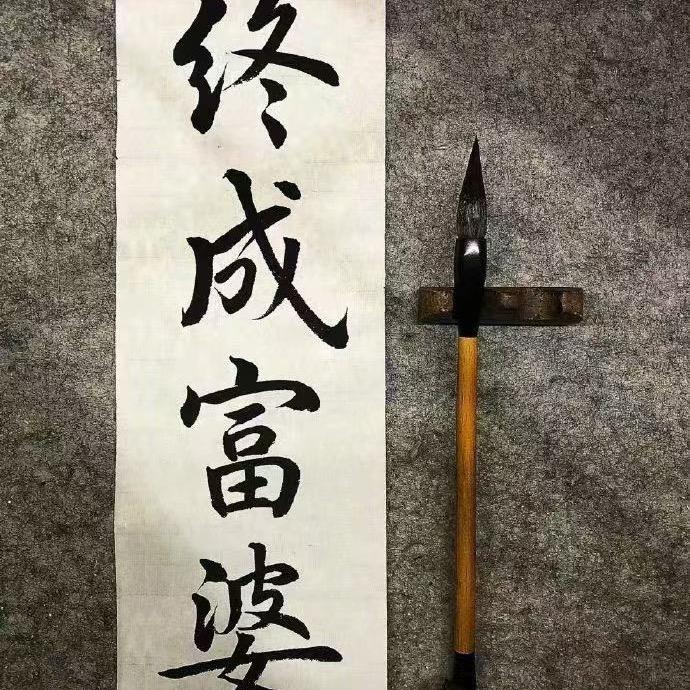 终成富婆